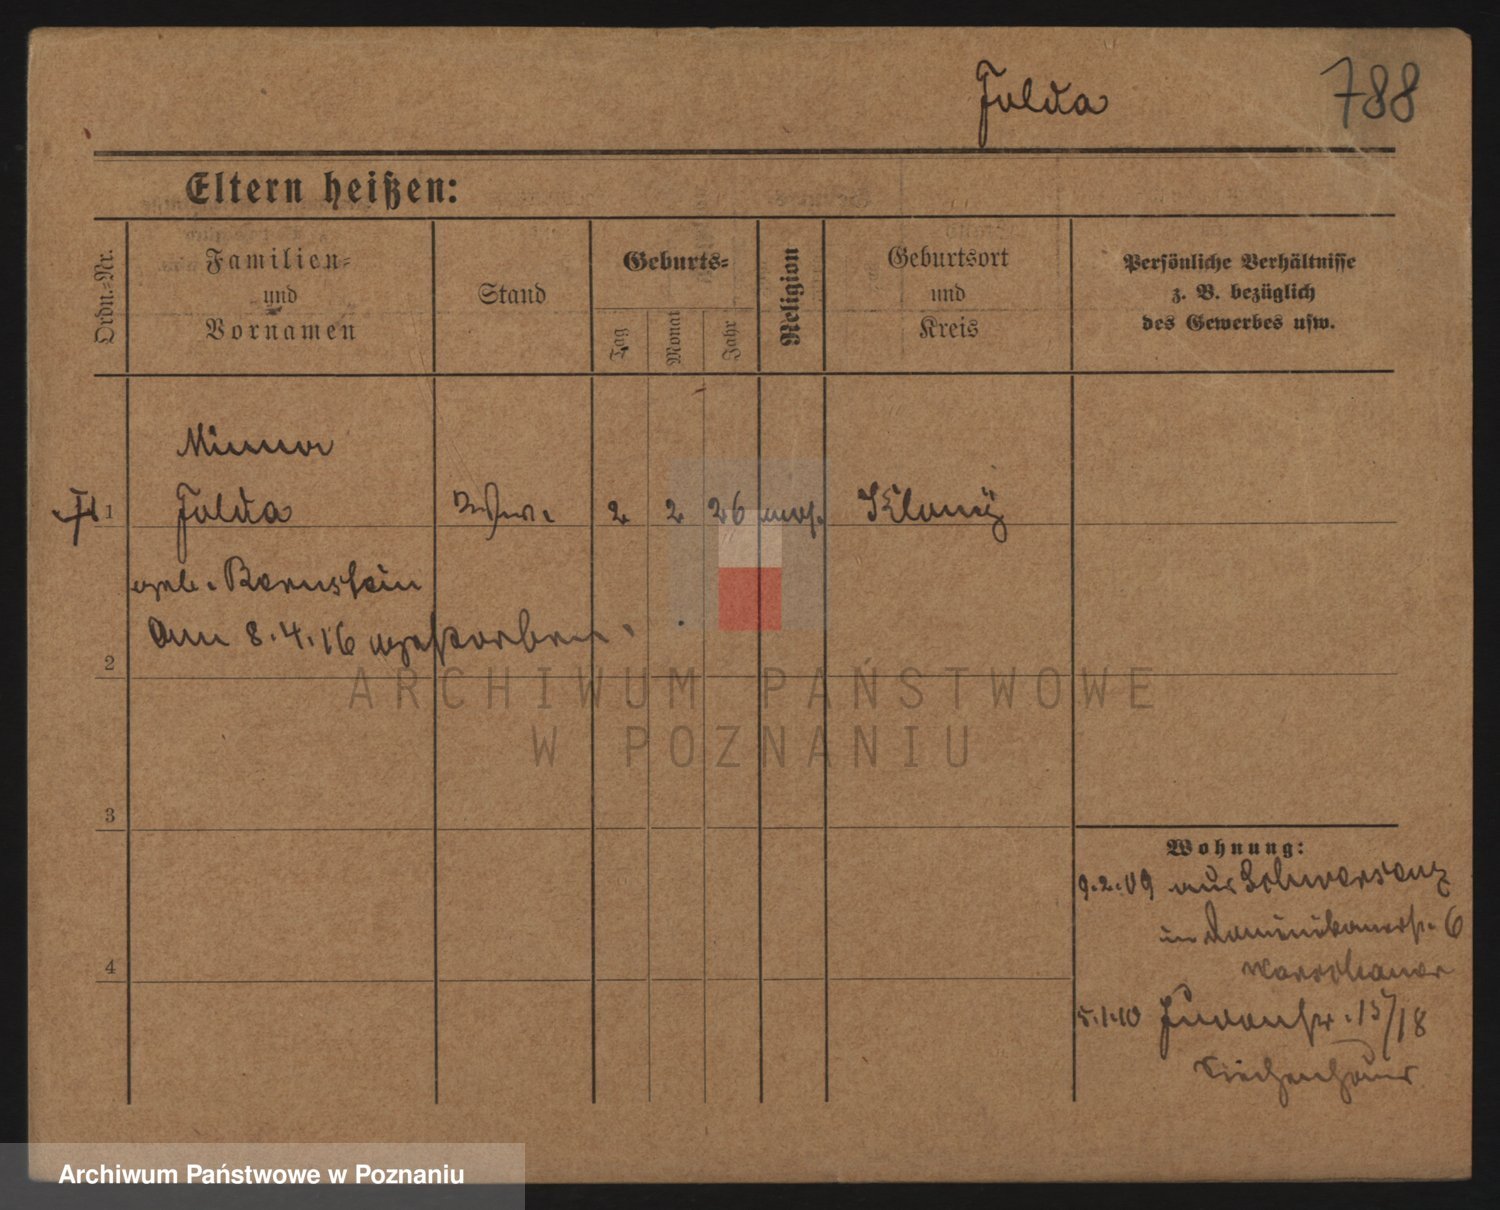 Jolda 788
Eltern heißen:
Ordn.-Nr.
Familien-
und
Vornamen
Stand
Geburts-
Tag
Monat
Jahr
Religion
Geburtsort
und
Kreis
Persönliche Verhältnisse
z. B. bezüglich
des Gewerbes usw.
Minna
1 Jolda 2 2 26 mos.
geb. Bernstein
am 8.4.16 gestorben.
2
ARCHIWUM PAŃSTWOWE
W POZNANIU
3
Wohnung:
9.2.09 aus Schwersenz
in Dominikanerstr. 6
Warschauer
4
5.1.10 Judenstr. 15/18
Siechenhaus
Archiwum Państwowe w Poznaniu